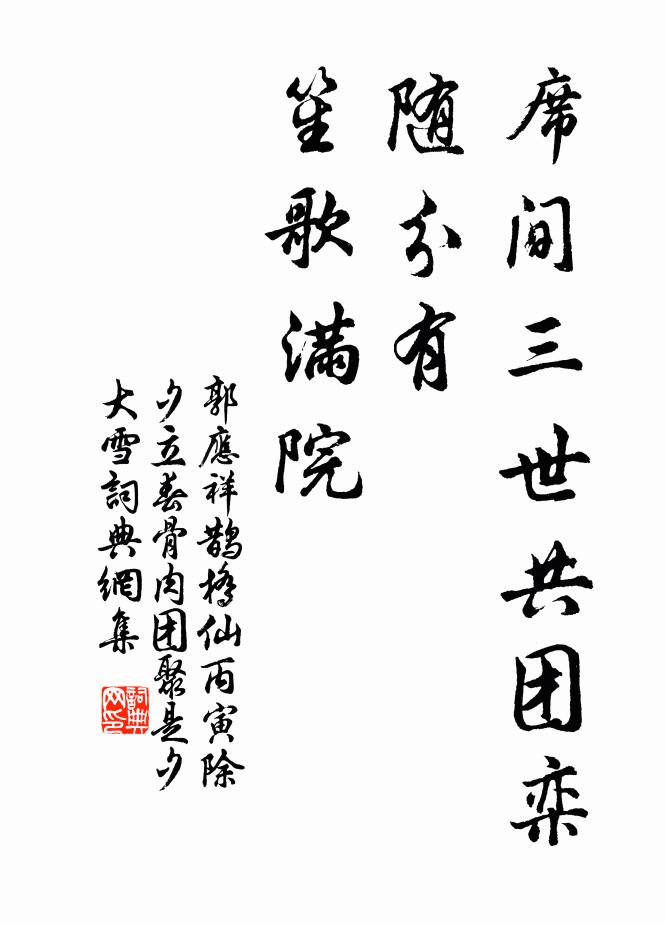 席间三世共团栾
随分有
笙歌满院
郭應祥鹊橋仙丙寅除
夕立春骨肉团聚是夕
大雪詞典網集
詞典网印